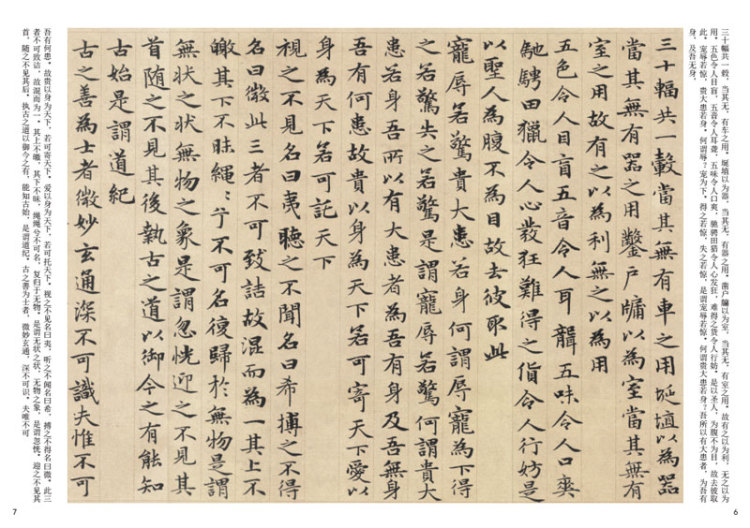 三十幅共一毂，当其无，有车之用。埏埴以为器，当其无，有器之用。凿户牖以为室，当其无，有室之用。故有之以为利，无之以为
用。五色令人目盲，五音令人耳聋，五味令人口爽，驰骋田猎令人心发狂，难得之货令人行妨。是以圣人，为腹不为目，故去彼取
此。宠辱若惊，贵大患若身。何谓辱？宠为下，得之若惊，失之若惊，是谓宠辱若惊。何谓贵大患若身？吾所以有大患者，为吾有
身，及吾无身，
三十輻共一轂當其無有車之用埏埴以為器
當其無有器之用鑿戶牖以為室當其無有
室之用故有之以為利無之以為用
五色令人目盲五音令人耳聾五味令人口爽
馳騁田獵令人心發狂難得之貨令人行妨是
以聖人為腹不為目故去彼取此
寵辱若驚貴大患若身何謂辱寵為下得
之若驚失之若驚是謂寵辱若驚何謂貴大
患若身吾所以有大患者為吾有身及吾無身
吾有何患故貴以身為天下若可寄天下愛以
身為天下若可託天下
視之不見名曰夷聽之不聞名曰希搏之不得
名曰微此三者不可致詰故混而為一其上不
皦其下不昧繩〻兮不可名復歸於無物是謂
無狀之狀無物之象是謂忽恍迎之不見其
首隨之不見其後執古之道以御今之有能知
古始是謂道紀
古之善為士者微妙玄通深不可識夫惟不可
吾有何患。故贵以身为天下，若可寄天下，爱以身为天下，若可托天下。视之不见名曰夷，听之不闻名曰希，搏之不得名曰微。此三
者不可致诘，故混而为一。其上不皦，其下不昧，绳绳兮不可名，复归于无物。是谓无状之状，无物之象，是谓忽恍。迎之不见其
首，随之不见其后。执古之道以御今之有，能知古始，是谓道纪。古之善为士者，微妙玄通，深不可识。夫唯不可
6
7